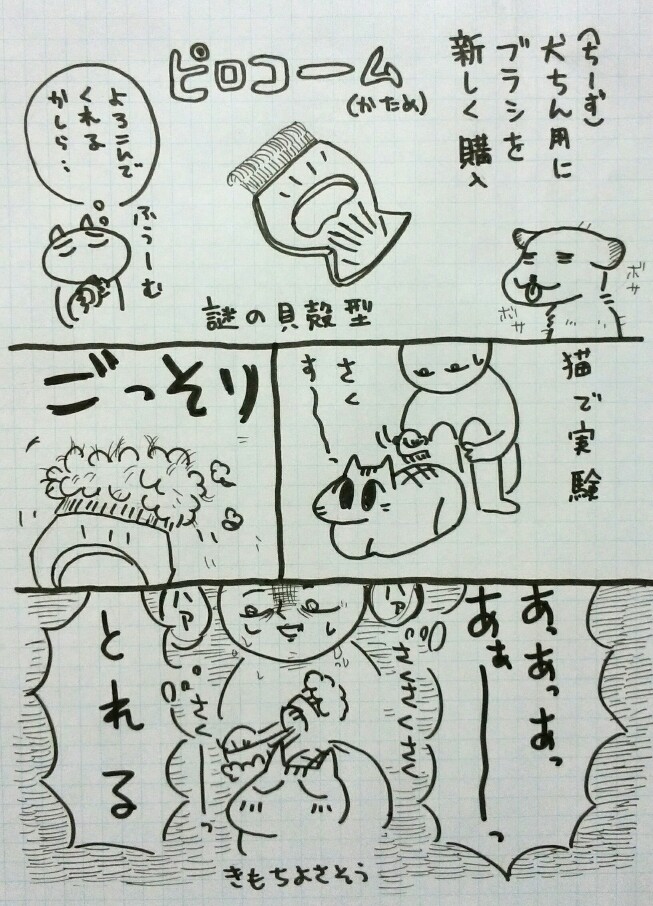 (ちーず)
犬ちん用に
ブラシを
新しく購入
ピロコーム
(かため)
よろこんで
くれる
かしら…
ふぅーむ
謎の貝殻型
ボサ
ボサ
猫で実験
さく
すーっ
ごっそり
あっあっあっ
あぁーーっ
ハァ
ハァ
さくさくさく
さくーっ
とれる
きもちよさそう